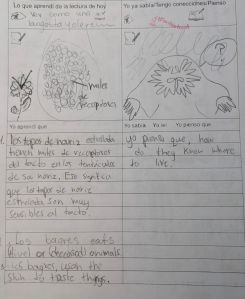 Lo que aprendí de la lectura de hoy
Yo ya sabía/Tengo conecciones/Pienso
Hoy como una
langosta y oler
miles
de
receptores
?
Yo aprendí que
Yo sabía Yo leí Yo pienso que
1. los topos de nariz estrellada
tienen miles de receptores
del tacto en los tentáculos
de su nariz, Eso significa
que los topos de nariz
estrellada son muy
sensibles al tacto.
yo pienso que, how
do they know where
to live?
Los bagres eats
animals
los bagres, usan the
skin to taste things.